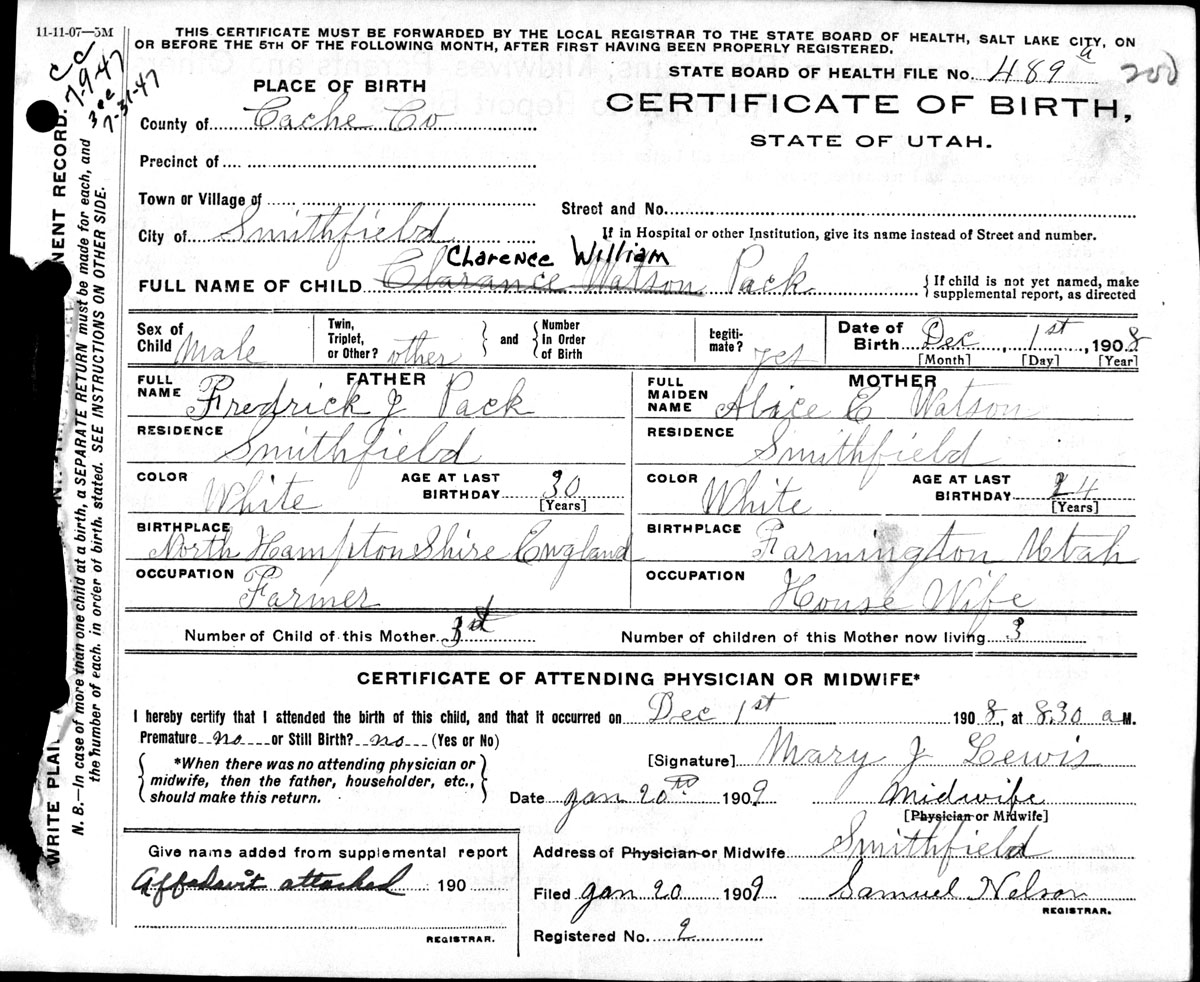 11-11-07—5M
THIS CERTIFICATE MUST BE FORWARDED BY THE LOCAL REGISTRAR TO THE STATE BOARD OF HEALTH, SALT LAKE CITY, ON
OR BEFORE THE 5TH OF THE FOLLOWING MONTH, AFTER FIRST HAVING BEEN PROPERLY REGISTERED.
CC
7-9-47
3 cc
7-31-47
STATE BOARD OF HEALTH FILE No. 489 a
200
PLACE OF BIRTH
CERTIFICATE OF BIRTH,
STATE OF UTAH.
County of Cache Co
Precinct of
Town or Village of
Street and No.
City of Smithfield
If in Hospital or other Institution, give its name instead of Street and number.
Clarence William
FULL NAME OF CHILD Clarance Watson Pack
If child is not yet named, make
supplemental report, as directed
Sex of Child Male
Twin, Triplet, or Other? other
and
Number In Order of Birth
Legiti-mate? yes
Date of Birth Dec 1st, 1908
[Month] [Day] [Year]
FATHER
FULL NAME Fredrick J Pack
MOTHER
FULL MAIDEN NAME Alice E Watson
RESIDENCE Smithfield
RESIDENCE Smithfield
COLOR White
AGE AT LAST BIRTHDAY 30
[Years]
COLOR White
AGE AT LAST BIRTHDAY 24
[Years]
BIRTHPLACE North HamptonShire England
BIRTHPLACE Farmington Utah
OCCUPATION Farmer
OCCUPATION House Wife
Number of Child of this Mother 3d
Number of children of this Mother now living 3
CERTIFICATE OF ATTENDING PHYSICIAN OR MIDWIFE*
I hereby certify that I attended the birth of this child, and that it occurred on Dec 1st 1908, at 8.30 a M.
Premature no or Still Birth? no (Yes or No)
*When there was no attending physician or
midwife, then the father, householder, etc.,
should make this return.
[Signature] Mary J Lewis
Date Jan 20th 1909
Midwife
[Physician or Midwife]
Give name added from supplemental report
Affedavit attached 190
REGISTRAR.
Address of Physician or Midwife Smithfield
Filed Jan 20 1909 Samuel Nelson
REGISTRAR.
Registered No. 9
WRITE PLAIN
NENT RECORD.
N. B.—In case of more than one child at a birth, a SEPARATE RETURN must be made for each, and
the number of each, in order of birth, stated. SEE INSTRUCTIONS ON OTHER SIDE.